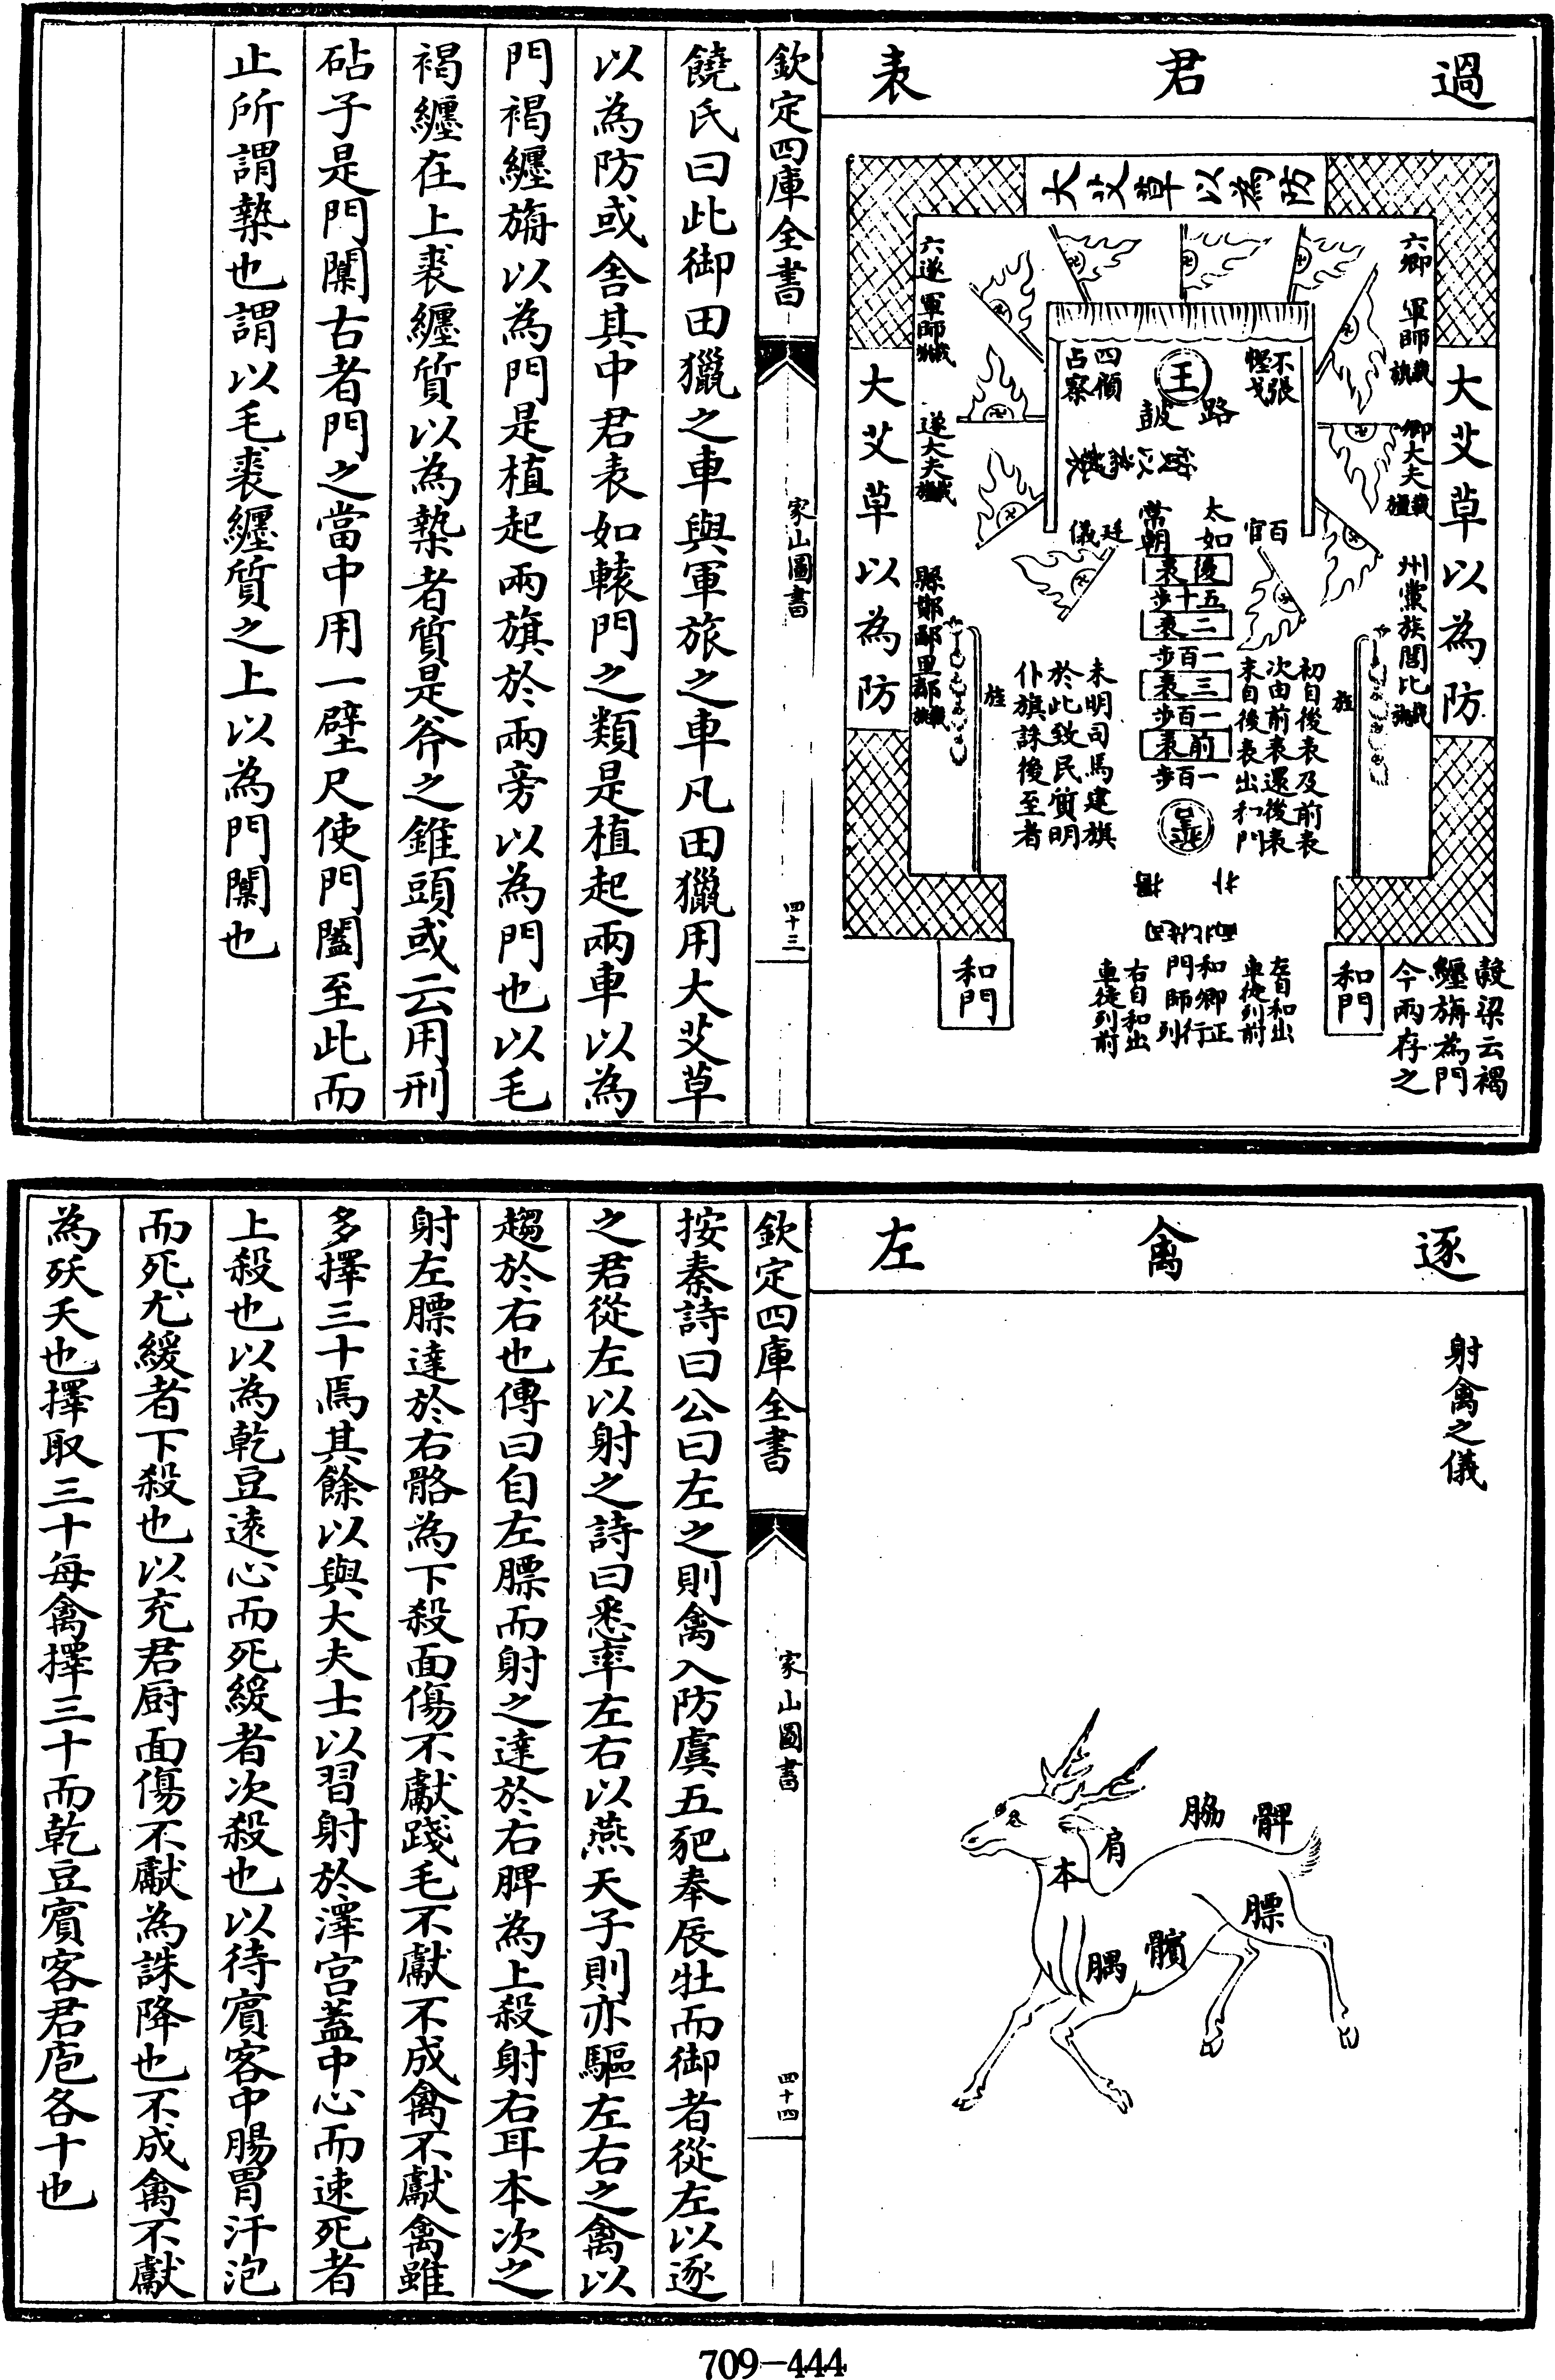 過君表
大艾草以為防
大艾草以為防
大艾草以為防
六鄉
軍師載旗
鄉大夫載旜
州黨族閭比
六遂
軍師載
遂大夫載
縣鄙鄼里鄰
王
路鼓
四傾
占察
不張
百官
廷儀
太常
如朝
後表
五十步
二表
一百步
三表
一百步
前表
一百步
旌
旌
初自後表及前表
次由前表還後表
末自後表出和門
未明司馬建旗
於此致民質明
仆旗誅後至者
和門
和門
左自和出
車徒列前
和卿正行
門師列
右自和出
車徒列前
穀梁云褐
纏旃為門
今兩存之
欽定四庫全書
家山圖書
四十三
饒氏曰此御田獵之車與軍旅之車凡田獵用大艾草
以為防或舍其中君表如轅門之類是植起兩車以為
門褐纏旃以為門是植起兩旗於兩旁以為門也以毛
褐纏在上裘纏質以為槷者質是斧之錐頭或云用刑
砧子是門闑古者門之當中用一壁尺使門闔至此而
止所謂槷也謂以毛裘纏質之上以為門闑也
逐禽左
射禽之儀
肩
本
脇
髀
膘
髃
髕
欽定四庫全書
家山圖書
四十四
按秦詩曰公曰左之則禽入防虞五豝奉辰牡而御者從左以逐
之君從左以射之詩曰悉率左右以燕天子則亦驅左右之禽以
趨於右也傳曰自左膘而射之達於右脾為上殺射右耳本次之
射左膘達於右骼為下殺面傷不獻踐毛不獻不成禽不獻禽雖
多擇三十焉其餘以與大夫士以習射於澤宮蓋中心而速死者
上殺也以為乾豆遠心而死緩者次殺也以待賓客中腸胃汗泡
而死尤緩者下殺也以充君厨面傷不獻為誅降也不成禽不獻
為殀夭也擇取三十每禽擇三十而乾豆賓客君庖各十也
709-444